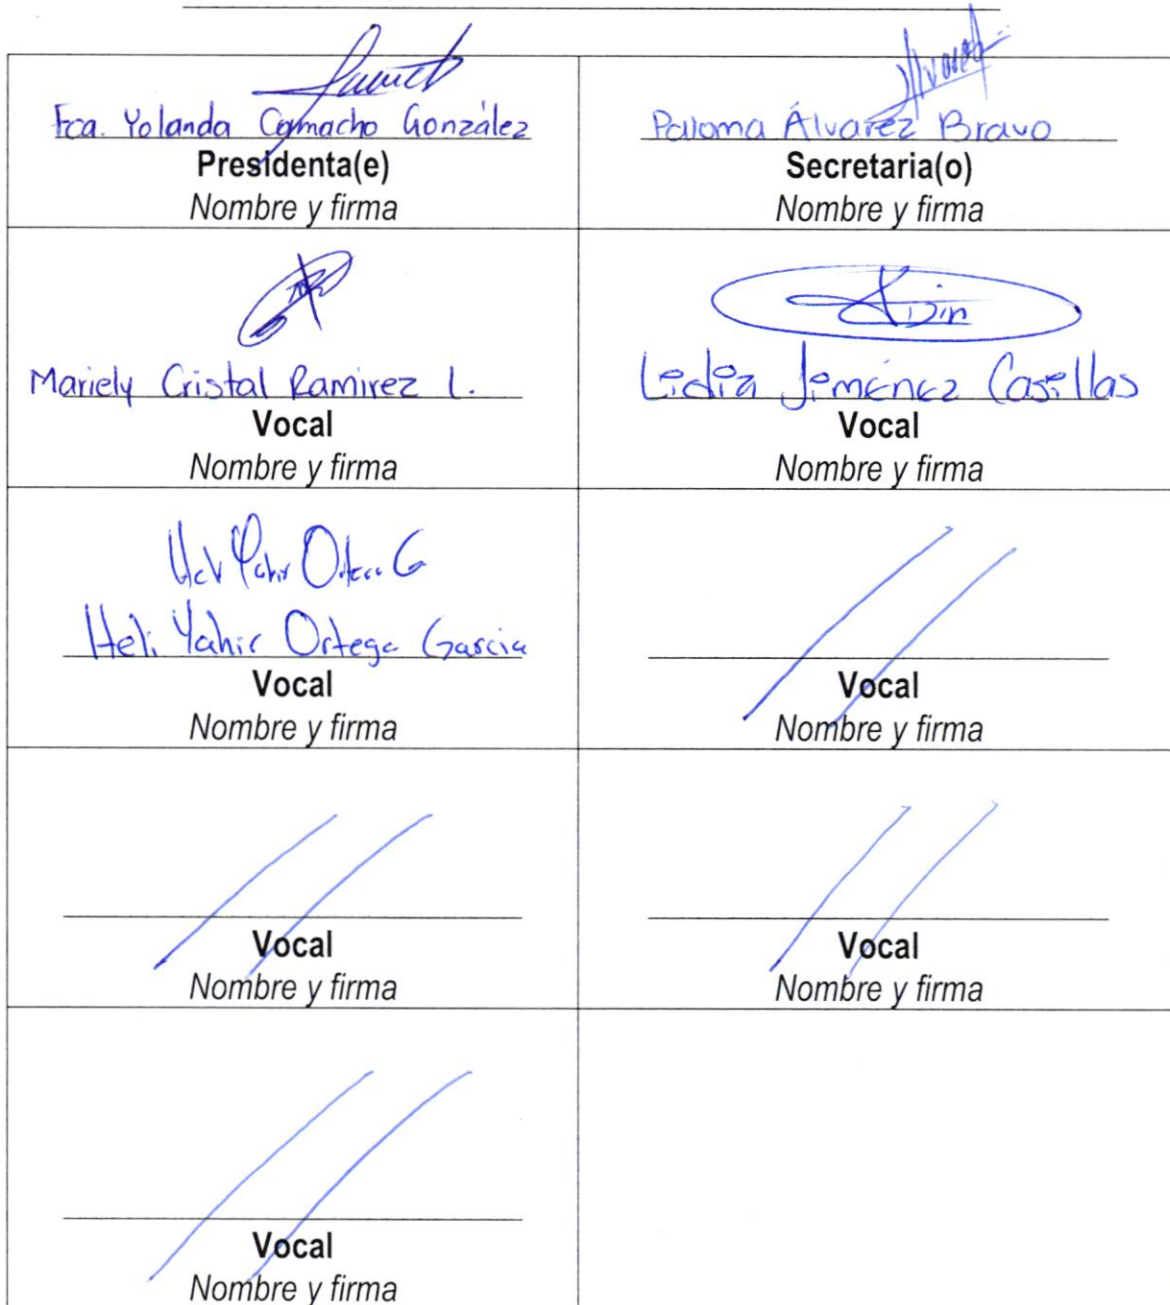 Fca. Yolanda Camacho González
Presidenta(e)
Nombre y firma
Paloma Álvarez Bravo
Secretaria(o)
Nombre y firma
Mariely Cristal Ramirez L.
Vocal
Nombre y firma
Lidia Jiménez Casillas
Vocal
Nombre y firma
Heli Yahir Ortega Garcia
Vocal
Nombre y firma
Vocal
Nombre y firma
Vocal
Nombre y firma
Vocal
Nombre y firma
Vocal
Nombre y firma